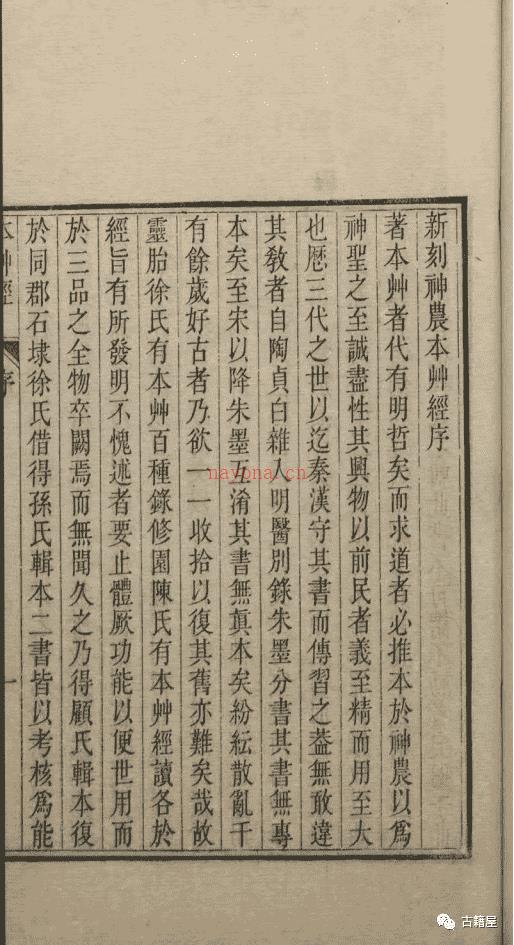 新刻神農本艸經序
著本艸者代有明哲矣而求道者必推本於神農以爲
神聖之至誠盡性其興物以前民者義至精而用至大
也厯三代之世以迄秦漢守其書而傳習之葢無敢違
其敎者自陶貞白雜入明醫別錄朱墨分書其書無專
本矣至宋以降朱墨互淆其書無眞本矣紛紜散亂千
有餘歲好古者乃欲一一收拾以復其舊亦難矣哉故
靈胎徐氏有本艸百種錄修園陳氏有本艸經讀各於
經旨有所發明不愧述者要止體厥功能以便世用而
於三品之全物卒闕焉而無聞久之乃得顧氏輯本復
於同郡石埭徐氏借得孫氏輯本二書皆以考核爲能
本艸經
序
一
nayona.cn
古籍屋